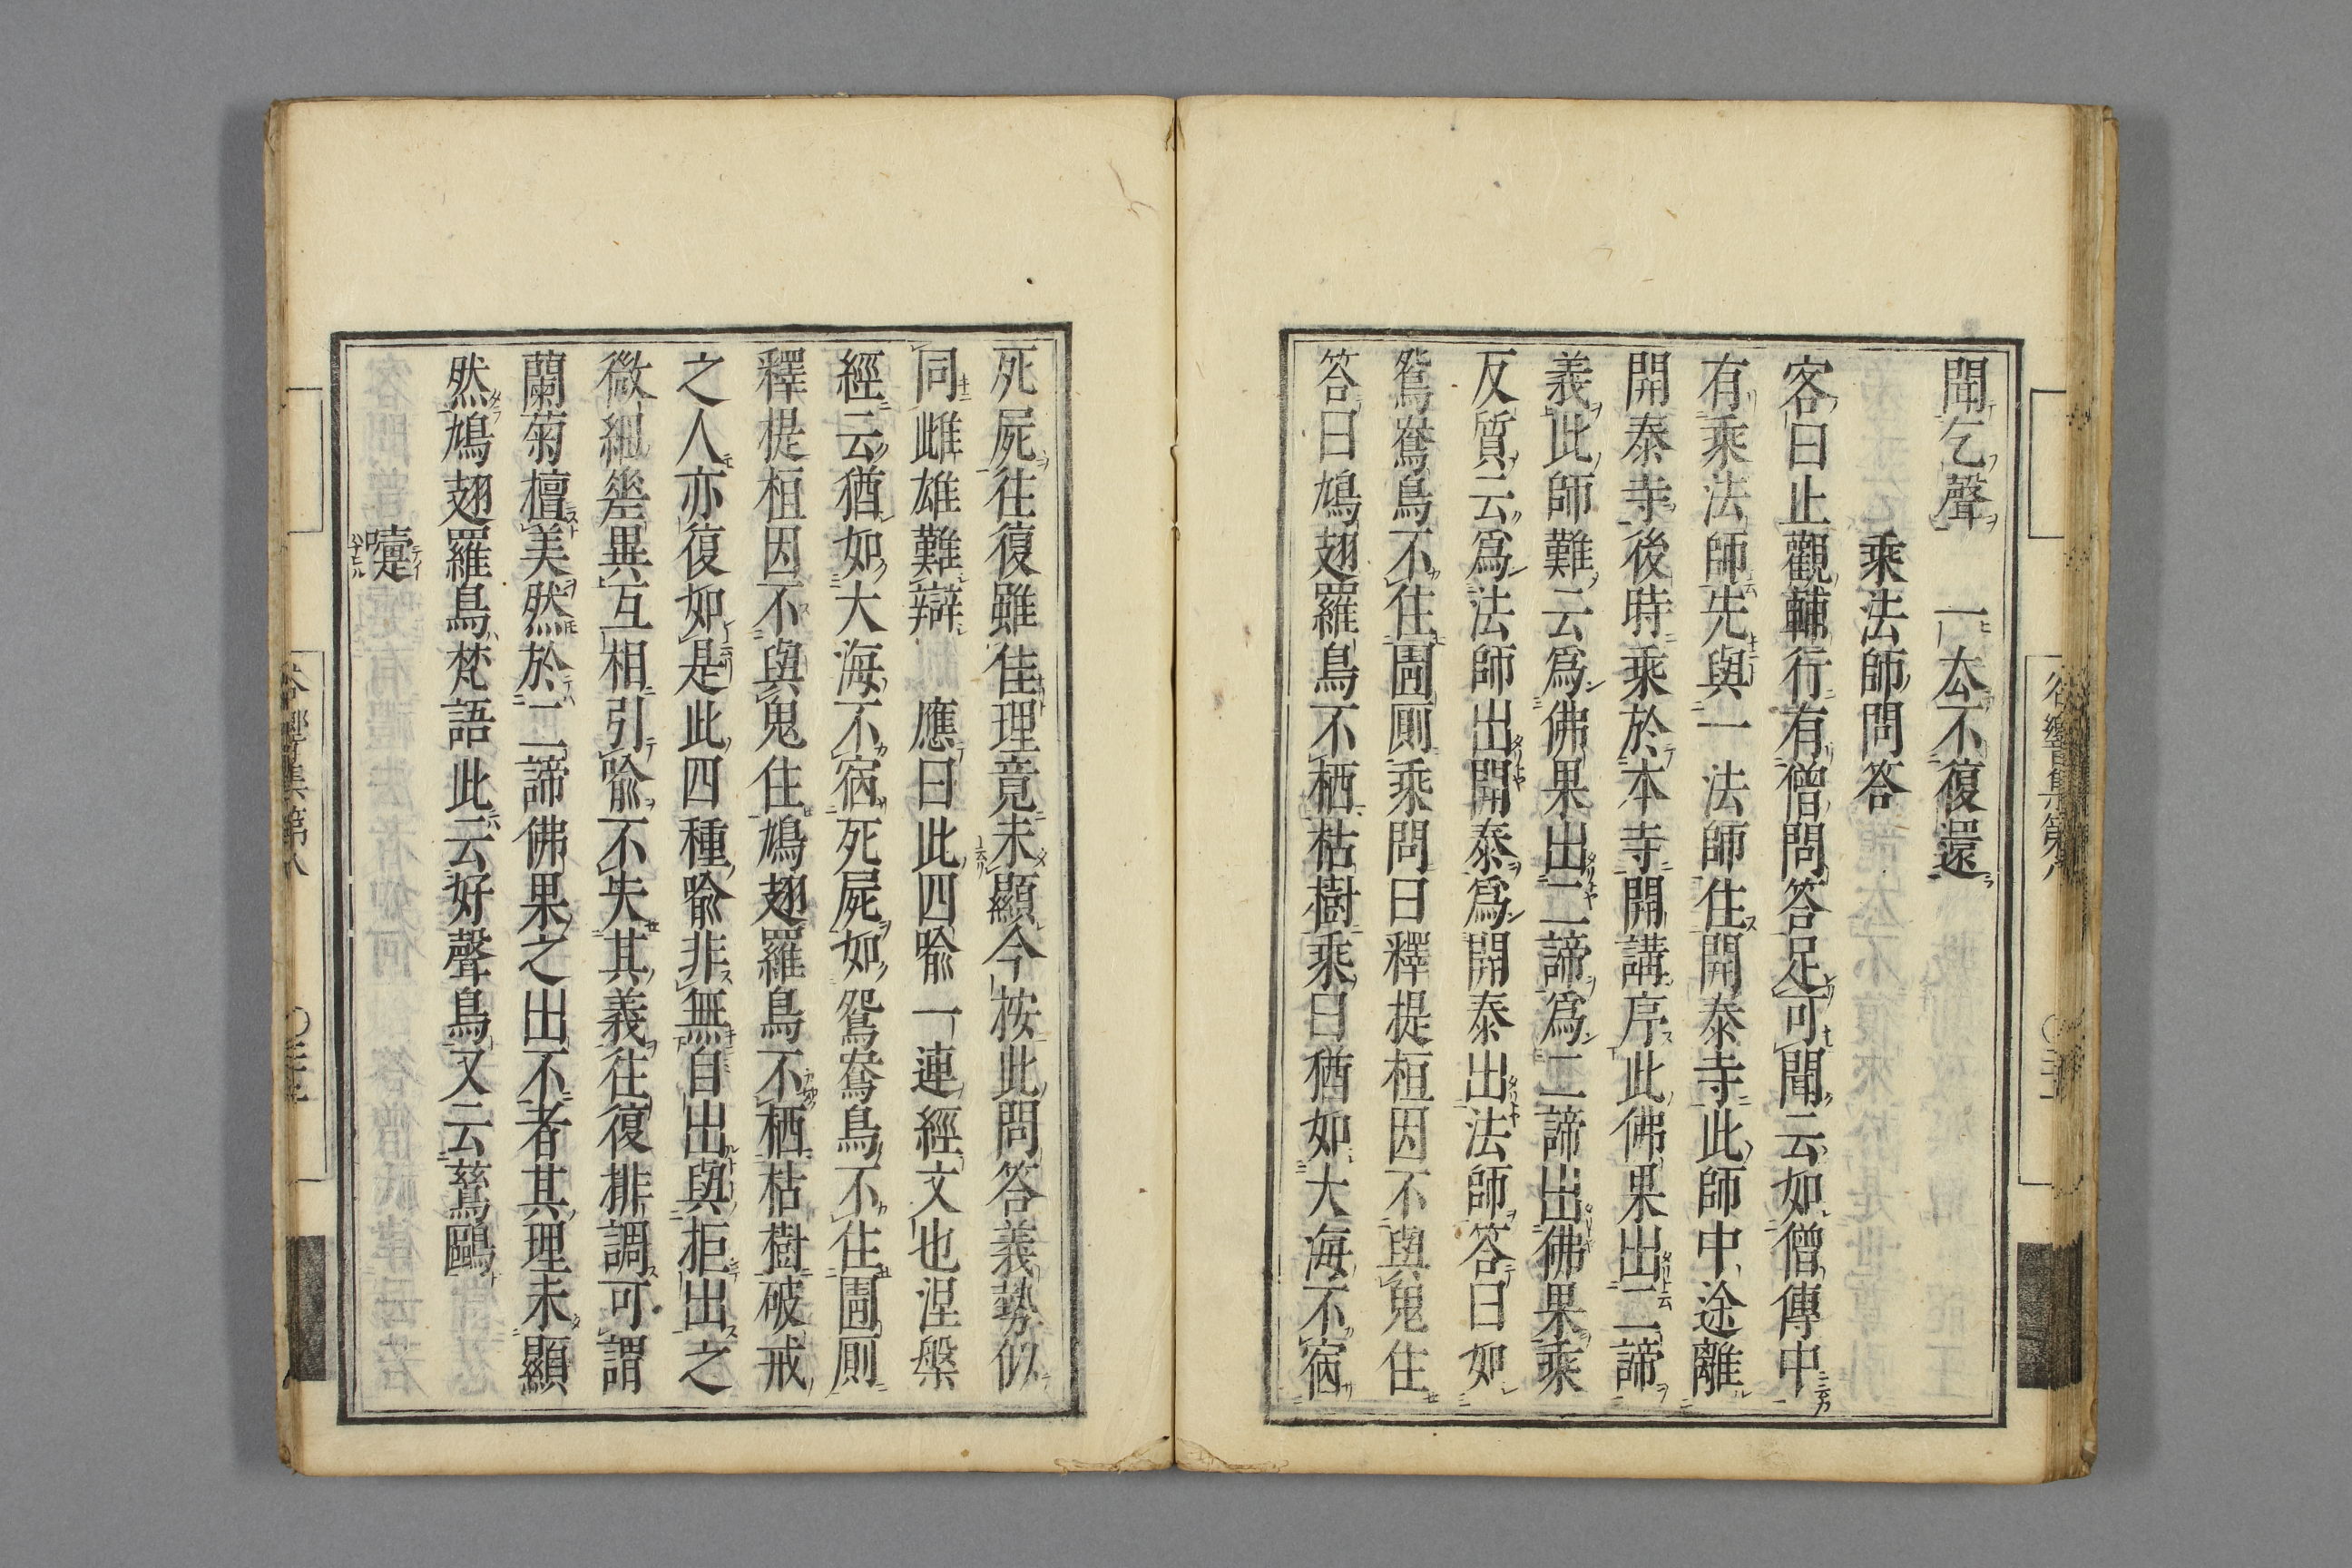 聞乞聲　一去不復還
乘法師問答
客曰止觀輔行有僧問答足可聞云如僧傳中
有乘法師先與一法師住開泰寺此師中途離
開泰寺後時乘於本寺開講序此佛果出二諦
義此師難云爲佛果出二諦爲二諦出佛果乘
反質云爲法師出開泰爲開泰出法師答曰如
鴛鴦鳥不住圊厠乘問曰釋提桓因不與鬼住
答曰鳩翅羅鳥不栖枯樹乘曰猶如大海不宿
死屍往復雖佳理竟未顯今按此問答義勢似
同雌雄難辯　應曰此四喩一連經文也涅槃
經云猶如大海不宿死屍如鴛鴦鳥不住圊厠
釋提桓因不與鬼住鳩翅羅鳥不栖枯樹破戒
之人亦復如是此四種喩非無自出與拒出之
微細差異互相引喩不失其義往復排調可謂
蘭菊檀美然於二諦佛果之出不者其理未顯
然鳩翅羅鳥梵語此云好聲鳥又云鶖鷗
嚏
谷響集第八
谷響集第八